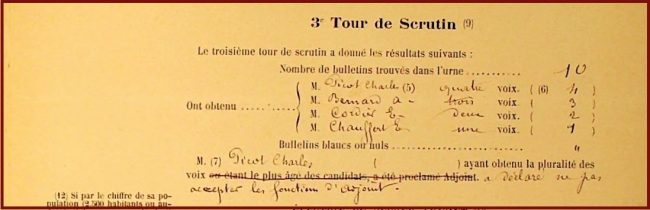 3e Tour de Scrutin (9)
Le troisième tour de scrutin a donné les résultats suivants :
Nombre de bulletins trouvés dans l'urne .......... 10
M. Picot Charles (5) quatre voix. (6) ( 4 )
M. Bernard A - trois voix. ( 3 )
Ont obtenu .........
M. Cordier E - deux voix. ( 2 )
M. Chauffert E une voix. ( 1 )
Bulletins blancs ou nuls ........ "
M. (7) Picot Charles ( ) ayant obtenu la pluralité des
voix ou étant le plus âgé des candidats, a été proclamé Adjoint. a déclaré ne pas
accepter les fonctions d'adjoint.
(12) Si par le chiffre de sa po-
pulation (2.500 habitants ou au-